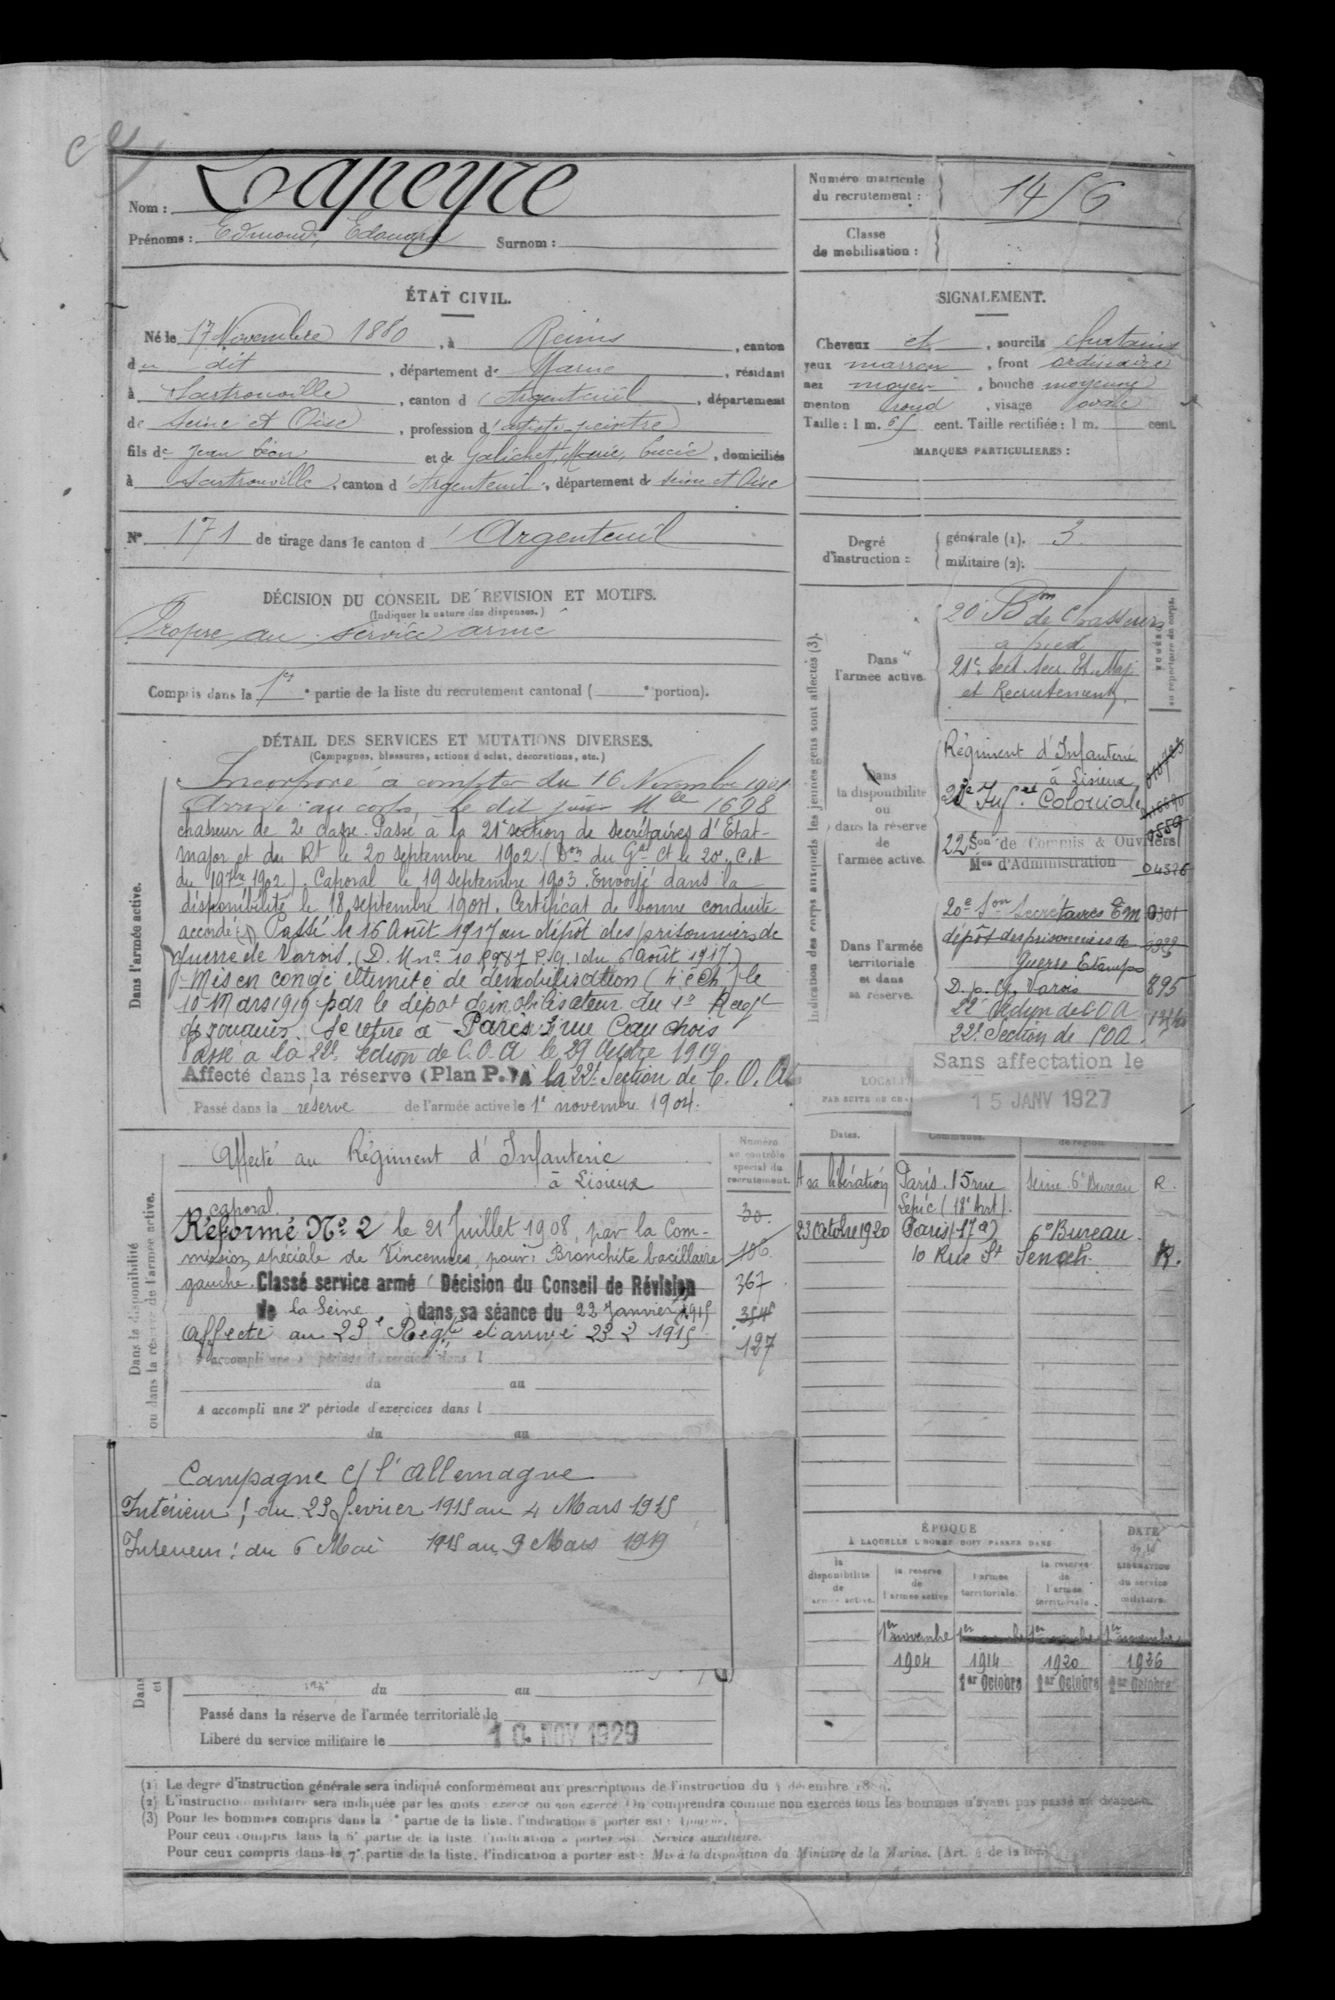 Nom : Lapeyre
Prénoms : Edmond, Edouard Surnom :
Numéro matricule du recrutement : 1456
Classe de mobilisation :
ÉTAT CIVIL.
Né le 17 Novembre 1880, à Reims, canton
du dit, département de Marne, résidant
à Sartrouville, canton d'Argenteuil, département
de Seine et Oise, profession d'artiste-peintre
fils de Jean Léon et de Galichet, Marie, Lucie, domiciliés
à Sartrouville, canton d'Argenteuil, département de Seine et Oise
N° 171 de tirage dans le canton d'Argenteuil
SIGNALEMENT.
Cheveux et, sourcils chatains
yeux marron, front ordinaire
nez moyen, bouche moyenne
menton rond, visage ovale
Taille : 1 m. 65 cent. Taille rectifiée : 1 m. cent.
MARQUES PARTICULIERES :
Degré d'instruction : générale (1). 3
militaire (2).
DÉCISION DU CONSEIL DE REVISION ET MOTIFS.
(Indiquer la nature des dispenses.)
Propre au service armé
Compris dans la 1re partie de la liste du recrutement cantonal ( e portion).
DÉTAIL DES SERVICES ET MUTATIONS DIVERSES.
(Campagnes, blessures, actions d'éclat, décorations, etc.)
Dans l'armée active.
Incorporé à compter du 16 Novembre 1901
Arrivé au corps le dit jour Mle 1698
chasseur de 2e classe. Passé à la 21e section de secrétaires d'Etat-
major et du Rt le 20 septembre 1902 (Don du Gal Ct le 20e C.A
du 19 7bre 1902). Caporal le 19 septembre 1903. Envoyé dans la
disponibilité le 18 septembre 1904. Certificat de bonne conduite
accordé. Passé le 16 Août 1917 au dépôt des prisonniers de
guerre de Varois. (D. M no 10 P.G. du 6 août 1917)
Mis en congé illimité de démobilisation (4e éch) le
10 Mars 1919 par le dépôt démobilisateur du 4e Regt
de zouaves. Se retire à Paris 3 rue Cauchois
Passé à la 22e section de C.O.A le 29 Octobre 1919
Affecté dans la réserve (Plan P.) à la 22e Section de C.O.A.
Passé dans la réserve de l'armée active le 1er novembre 1904.
Indication des corps auxquels les jeunes gens sont affectés (3).
Dans l'armée active.
20e Bon de Chasseurs
à pied
21e Sect. Secr. Et. Maj
et Recrutement
Dans la disponibilité ou dans la réserve de l'armée active.
Régiment d'Infanterie
à Lisieux
23e Infie Coloniale
22e Son de Commis & Ouvriers
Mres d'Administration 04526
Dans l'armée territoriale et dans sa réserve.
20e Son Secrétaires E M
dépôt des prisonniers de
Guerre Etampes
D. p. G. Varois 895
22e Section de COA
22e Section de COA.
Sans affectation le
15 JANV 1927
Dans la disponibilité ou dans la réserve de l'armée active.
Numéro au contrôle spécial du recrutement.
Affecté au Régiment d'Infanterie
à Lisieux
caporal
Réformé N° 2 le 21 Juillet 1908, par la Com-
mission spéciale de Vincennes, pour : Bronchite bacillaire
gauche. Classé service armé (Décision du Conseil de Révision
de la Seine) dans sa séance du 22 Janvier 1915
Affecté au 23e Régt et arrivé 23 2 1915
30.
106
367
127
A accompli une 1re période d'exercices dans l
du au
A accompli une 2e période d'exercices dans l
du au
Dates. Communes.
A sa libération Paris. 15 rue Lepic (18e Arrt). Seine 6e Bureau R.
23 Octobre 1920 Paris (17e) 10 Rue St Senoch 6e Bureau. R.
Campagne c/ l'Allemagne
Intérieur : du 23 février 1915 au 4 Mars 1915
Intérieur : du 6 Mai 1915 au 9 Mars 1919
ÉPOQUE
À LAQUELLE L'HOMME DOIT PASSER DANS
la disponibilité de l'armée active.
la réserve de l'armée active
l'armée territoriale.
la réserve de l'armée territoriale.
DATE de la LIBÉRATION du service militaire.
1er novembre 1er novembre 1er novembre 1er novembre
1904 1914 1920 1926
1er Octobre 1er Octobre 1er Octobre
du au
Passé dans la réserve de l'armée territoriale le
Libéré du service militaire le 10 NOV 1929
(1) Le degré d'instruction générale sera indiqué conformément aux prescriptions de l'instruction du
(2) L'instruction militaire sera indiquée par les mots : exercé ou non exercé. On comprendra comme non exercés tous les hommes n'ayant pas passé au drapeau.
(3) Pour les hommes compris dans la 1re partie de la liste, l'indication à porter est :
Pour ceux compris dans la 6e partie de la liste, l'indication à porter est : Service auxiliaire.
Pour ceux compris dans la 7e partie de la liste, l'indication à porter est : Mis à la disposition du Ministre de la Marine. (Art. 4 de la loi)